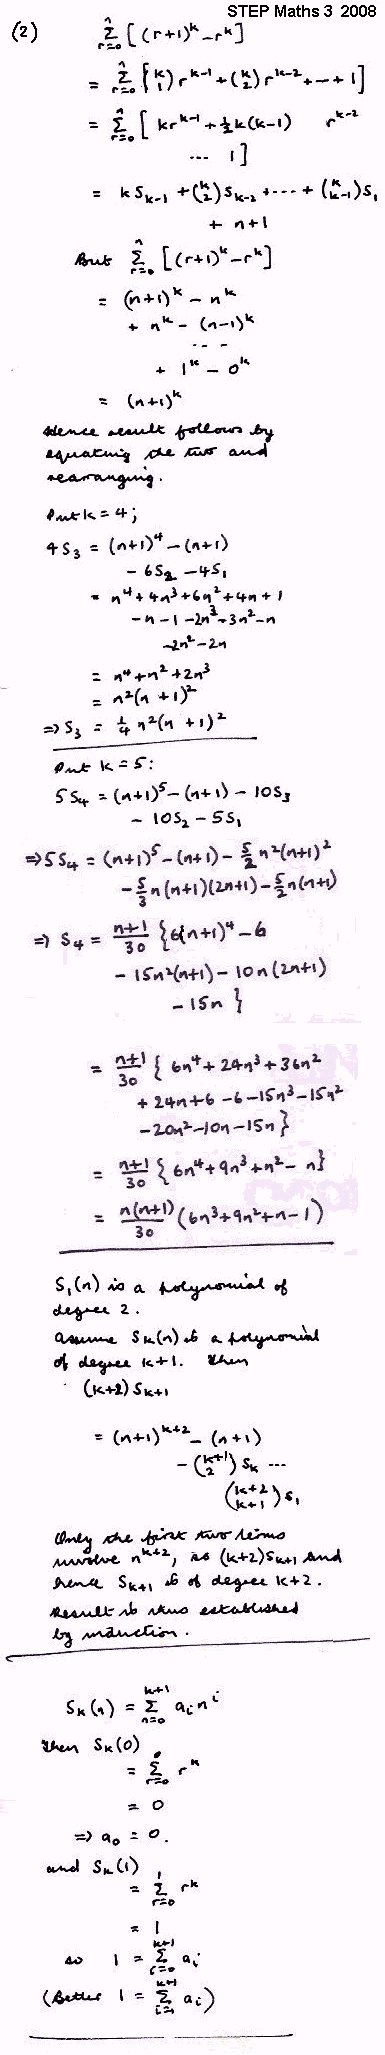 STEP Maths 3 2008
(2) n∑r=0 [(r+1)^k - r^k]
= n∑r=0 [(k 1) r^k-1 + (k 2) r^k-2 + --- + 1]
= n∑r=0 [k r^k-1 + ½k(k-1) r^k-2
... 1]
= k S_k-1 + (k 2) S_k-2 + ... + (k k-1) S_1
+ n+1
But n∑r=0 [(r+1)^k - r^k]
= (n+1)^k - n^k
+ n^k - (n-1)^k
...
+ 1^k - 0^k
= (n+1)^k
Hence result follows by
equating the two and
rearranging.
Put k = 4;
4S_3 = (n+1)^4 - (n+1)
- 6S_2 - 4S_1
= n^4 + 4n^3 + 6n^2 + 4n + 1
- n - 1 - 2n^3 - 3n^2 - n
- 2n^2 - 2n
= n^4 + n^2 + 2n^3
= n^2(n+1)^2
⇒ S_3 = ¼ n^2(n+1)^2
Put k = 5:
5S_4 = (n+1)^5 - (n+1) - 10S_3
- 10S_2 - 5S_1
⇒ 5S_4 = (n+1)^5 - (n+1) - 5/2 n^2(n+1)^2
- 5/3 n(n+1)(2n+1) - 5/2 n(n+1)
⇒ S_4 = (n+1)/30 {6(n+1)^4 - 6
- 15n^2(n+1) - 10n(2n+1)
- 15n}
= (n+1)/30 {6n^4 + 24n^3 + 36n^2
+ 24n + 6 - 6 - 15n^3 - 15n^2
- 20n^2 - 10n - 15n}
= (n+1)/30 {6n^4 + 9n^3 + n^2 - n}
= n(n+1)/30 (6n^3 + 9n^2 + n - 1)
S_1(n) is a polynomial of
degree 2.
Assume S_k(n) is a polynomial
of degree k+1. Then
(k+2) S_k+1
= (n+1)^k+2 - (n+1)
- (k+1 2) S_k ...
(k+2 k+1) S_1
Only the first two terms
involve n^k+2, so (k+2)S_k+1 and
hence S_k+1 is of degree k+2.
Result is thus established
by induction.
S_k(n) = k+1∑n=0 a_i n^i
Then S_k(0)
= 0∑r=0 r^k
= 0
⇒ a_0 = 0.
and S_k(1)
= 1∑r=0 r^k
= 1
so 1 = k+1∑i=0 a_i
(Better 1 = k+1∑i=1 a_i)